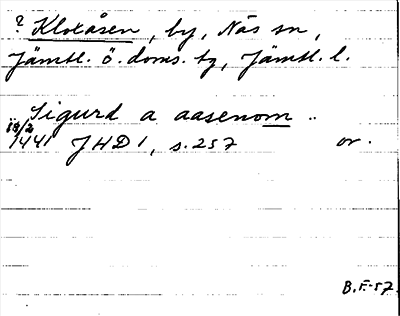 ? Kloxåsen, by, Näs sn,
Jämtl. ö. doms. tg, Jämtl. l.
.. Sigurd a aasenom ..
18/2
1441 JHD 1, s. 257 or.
B.F-57.